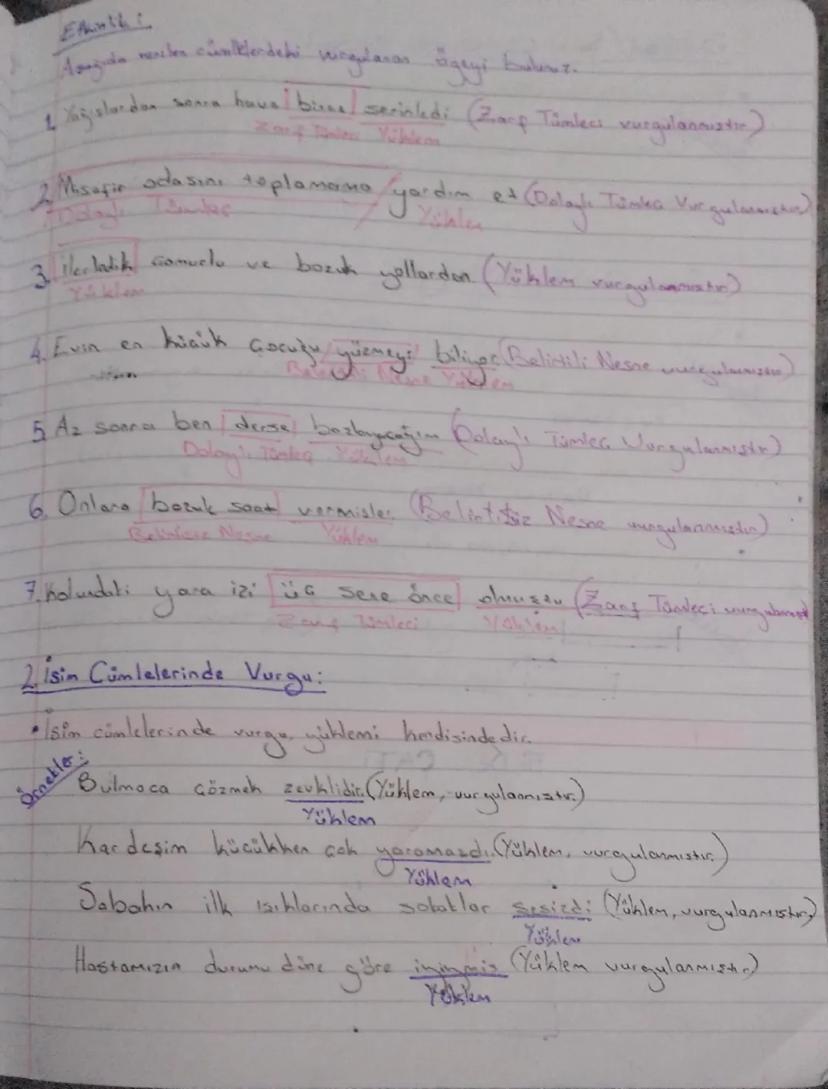 Etkinlik:
Aşağıda verilen cümlelerdeki vurgulanan ögeyi bulunuz.
1. Yağışlardan sonra hava biraz serinledi (Zarf Tümleci vurgulanmıştır)
Zarf Tümleci Yüklem
2. Misafir odasını toplamama yardım et (Dolaylı Tümleç Vurgulanmıştır)
Dolaylı Tümleç Yüklem
3. ilerledik çamurlu ve bozuk yollardan (Yüklem vurgulanmıştır)
Yüklem
4. Evin en küçük çocuğu yüzmeyi biliyor (Belirtili Nesne vurgulanmıştır)
Belirtili Nesne Yüklem
5. Az sonra ben derse başlayacağım (Dolaylı Tümleç Vurgulanmıştır)
Dolaylı Tümleç Yüklem
6. Onlara bozuk saat vermişler (Belirtisiz Nesne vurgulanmıştır)
Belirtisiz Nesne Yüklem
7. Kolundaki yara izi üç sene önce olmuştu (Zarf Tümleci vurgulanmış
Zarf Tümleci Yüklem
2. İsim Cümlelerinde Vurgu:
• İsim cümlelerinde vurgu, yüklemi kendisindedir.
Örnekler:
Bulmaca çözmek zevklidir. (Yüklem, vurgulanmıştır.)
Yüklem
Kardeşim küçükken çok yaramazdı. (Yüklem, vurgulanmıştır.)
Yüklem
Sabahın ilk ışıklarında sokaklar sesizdi (Yüklem, vurgulanmıştır)
Yüklem
Hastamızın durumu düne göre iyiymiş (Yüklem vurgulanmıştır)
Yüklem